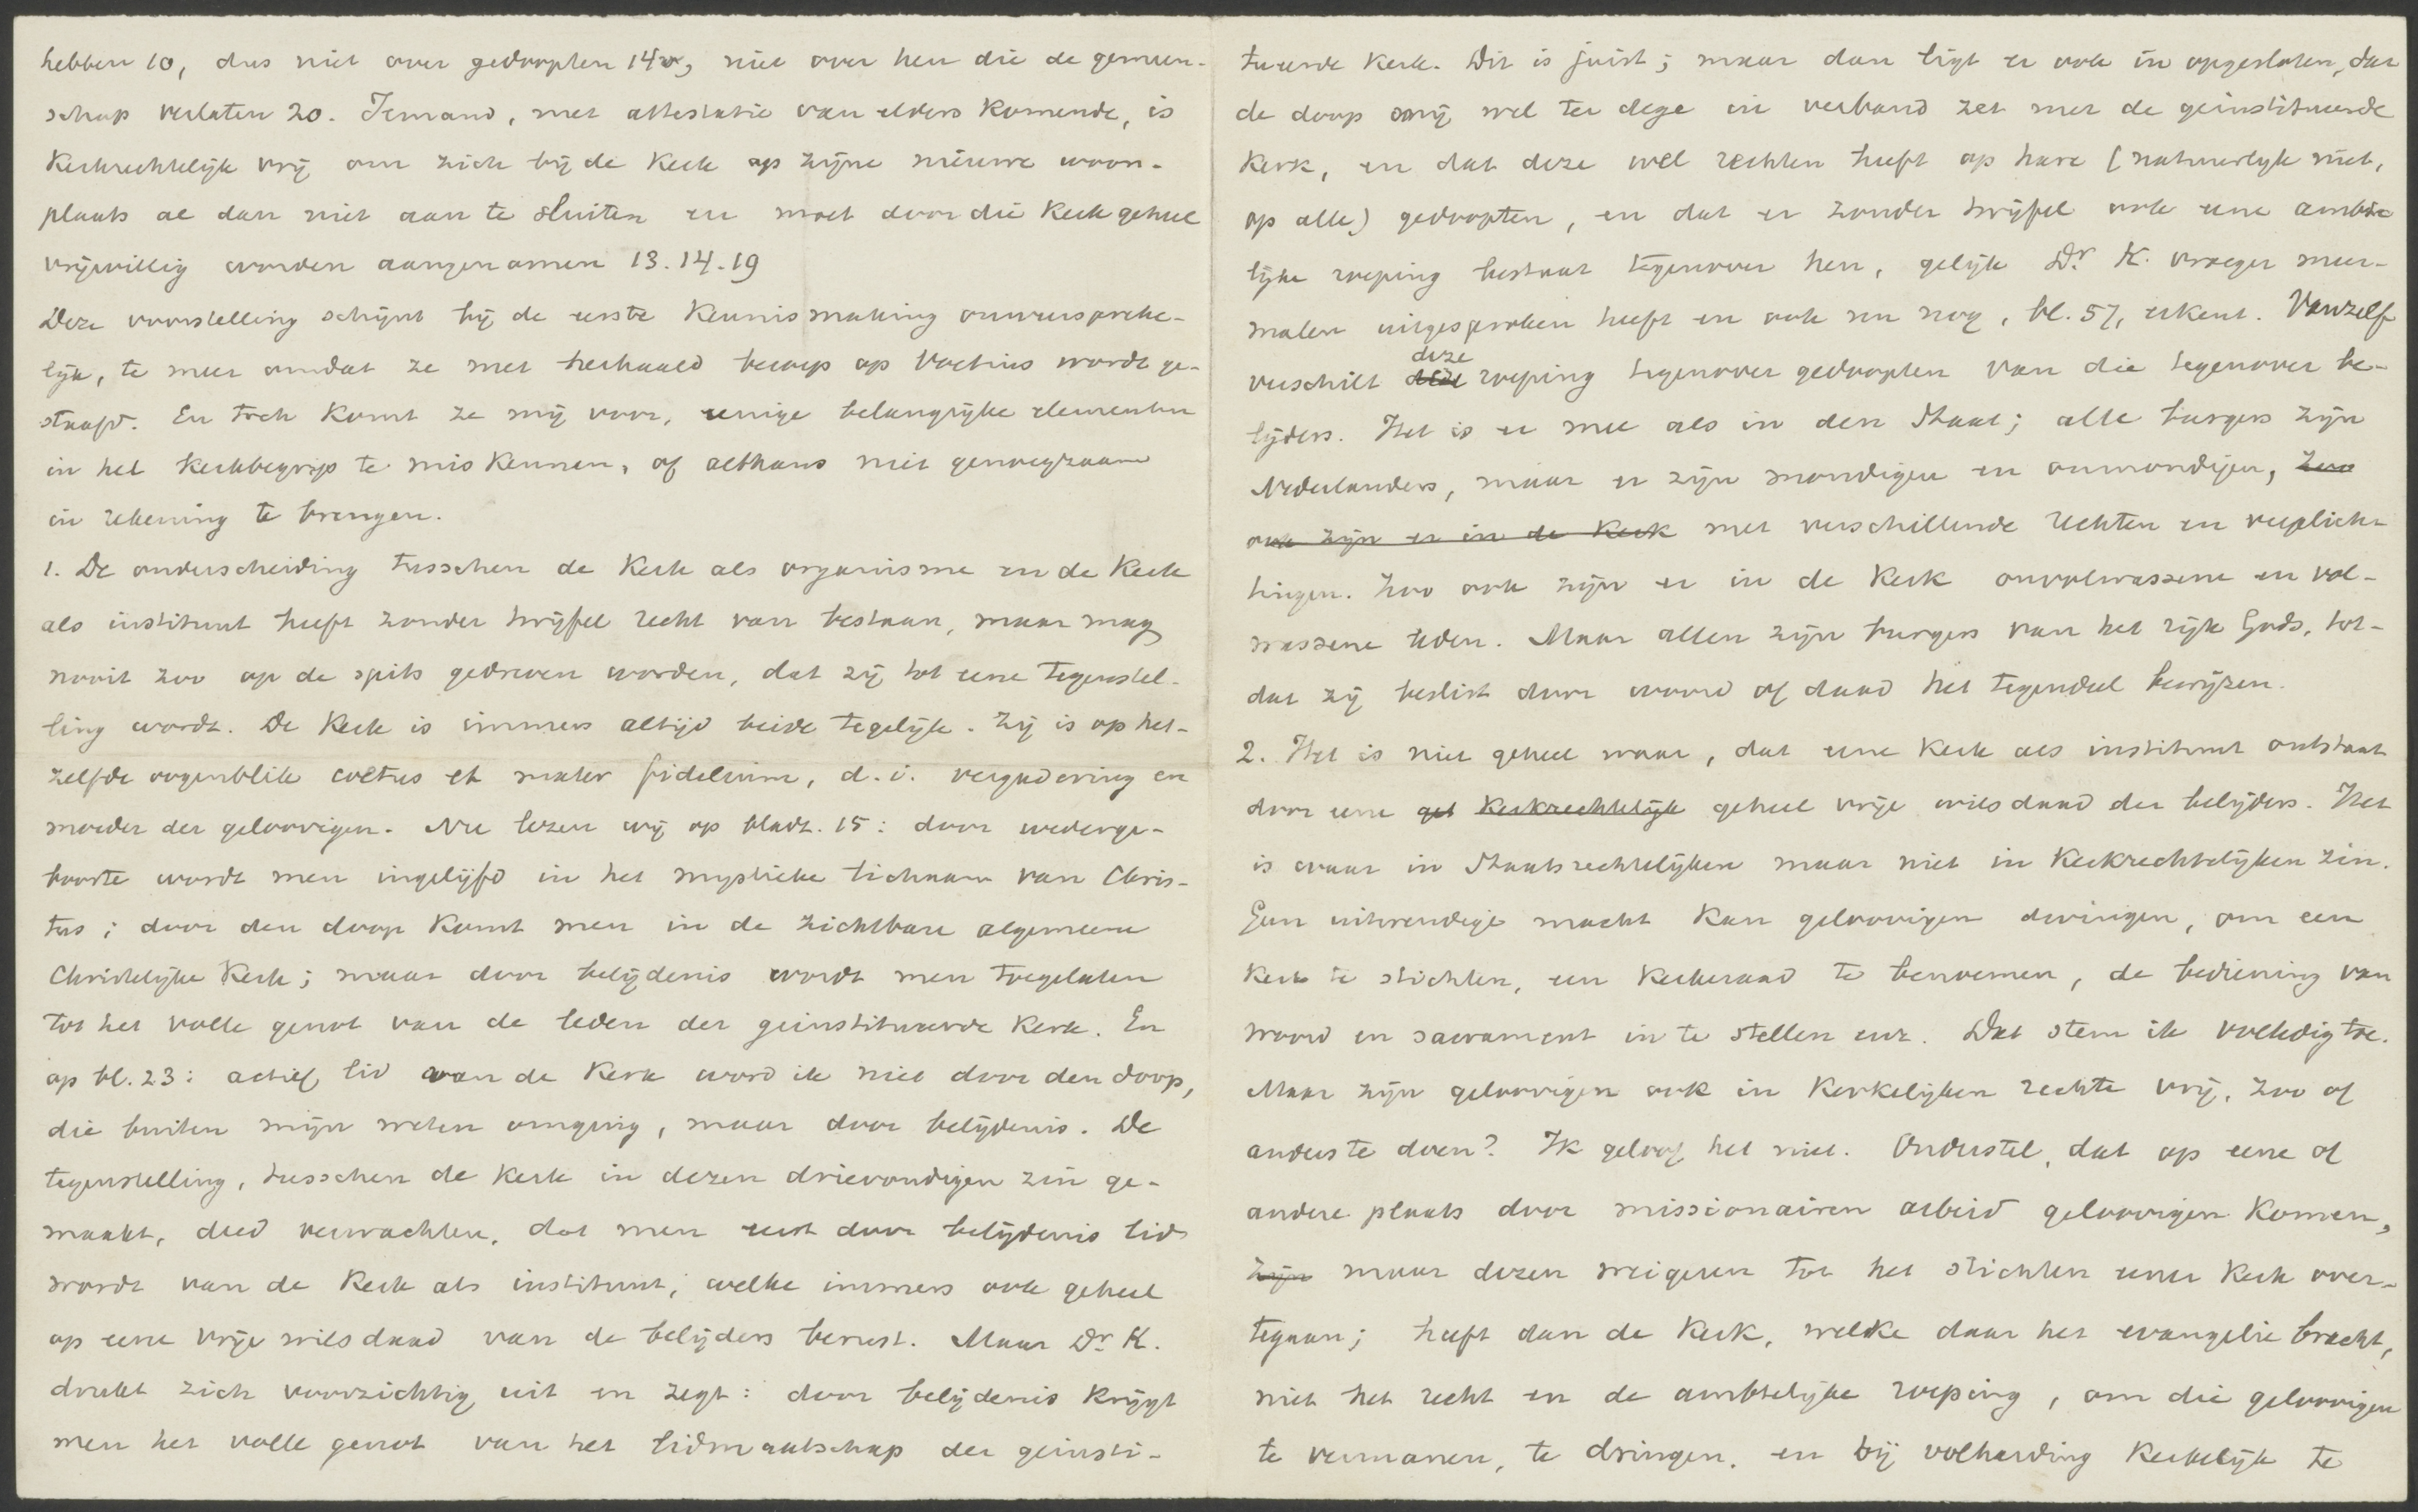 hebben 10, dus niet over gedoopten 14v, niet over hen die de gemeen-
schap verlaten 20. Iemand, met attestatie van elders komende, is
Kerkrechtelijk vrij om zich bij de Kerk op zijne nieuwe woon-
plaats al dan niet aan te sluiten en moet door die Kerk geheel
vrijwillig worden aangenomen 13.14.19
Deze voorstelling schijnt bij de eerste Kennismaking onweerspreke-
lijk, te meer omdat ze met herhaald beroep op Voetius wordt ge-
staafd. En toch komt ze mij voor, eenige belangrijke elementen
in het Kerkbegrip te miskennen, of althans niet genoegzaam
in rekening te brengen.
1. De onderscheiding tusschen de Kerk als organisme en de Kerk
als instituut heeft zonder twijfel recht van bestaan, maar mag
nooit zoo op de spits gedreven worden, dat zij tot eene tegenstel-
ling wordt. De Kerk is immers altijd beide tegelijk. Zij is op het-
zelfde oogenblik coetus et mater fidelium, d.i. vergadering en
moeder der geloovigen. Nu lezen wij op bladz. 15: door wederge-
boorte wordt men ingelijfd in het mystieke lichaam van Chris-
tus; door den doop komt men in de zichtbare algemeene
Christelijke Kerk; maar door belijdenis wordt men toegelaten
tot het volle genot van de leden der geinstitueerde Kerk. En
op bl. 23: actief lid van de Kerk word ik niet door den doop,
die buiten mijn weten omging, maar door belijdenis. De
tegenstelling, tusschen de Kerk in dezen drievoudigen zin ge-
maakt, deed verwachten, dat men eerst door belijdenis lid
wordt van de Kerk als instituut, welke immers ook geheel
op eene vrije wilsdaad van de belijders berust. Maar Dr. K.
drukt zich voorzichtig uit en zegt: door belijdenis krijgt
men het volle genot van het lidmaatschap der geinsti-
tueerde Kerk. Dit is juist; maar dan ligt er ook in opgesloten, dat
de doop mij wel ter dege in verband zet met de geinstitueerde
Kerk, en dat deze wel rechten heeft op hare (natuurlijk niet,
op alle) gedoopten, en dat er zonder twijfel ook eene ambte
lijke roeping bestaat tegenover hen, gelijk Dr. K. vroeger meer-
malen uitgesproken heeft en ook nu nog, bl. 57, erkent. Vanzelf
verschilt deze roeping tegenover gedoopten van die tegenover be-
lijders. Het is er mee als in den Staat; alle burgers zijn
Nederlanders, maar er zijn mondigen en onmondigen, zoo
ook zijn er in de Kerk met verschillende rechten en verplich-
tingen. Zoo ook zijn er in de Kerk onvolwassene en vol-
wassene leden. Maar allen zijn burgers van het rijk Gods, tot-
dat zij beslist door woord of daad het tegendeel bewijzen.
2. Het is niet geheel waar, dat eene Kerk als instituut ontstaat
door eene gel Kerkrechtelijk geheel vrije wilsdaad der belijders. Het
is waar in Staatsrechtelijken maar niet in Kerkrechtelijken zin.
Geen uitwendige macht kan geloovigen dwingen, om een
Kerk te stichten, een Kerkeraad te benoemen, de bediening van
woord en sacrament in te stellen enz. Dat stem ik volledig toe.
Maar zijn geloovigen ook in Kerkelijken rechte vrij, zoo of
anders te doen? Ik geloof het niet. Onderstel, dat op eene of
andere plaats door missionairen arbeid geloovigen komen,
zijn maar dezen weigeren tot het stichten eener Kerk over-
tegaan; heeft dan de Kerk, welke daar het evangelie bracht,
niet het recht en de ambtelijke roeping, om die geloovigen
te vermanen, te dringen, en bij volharding Kerkelijk te